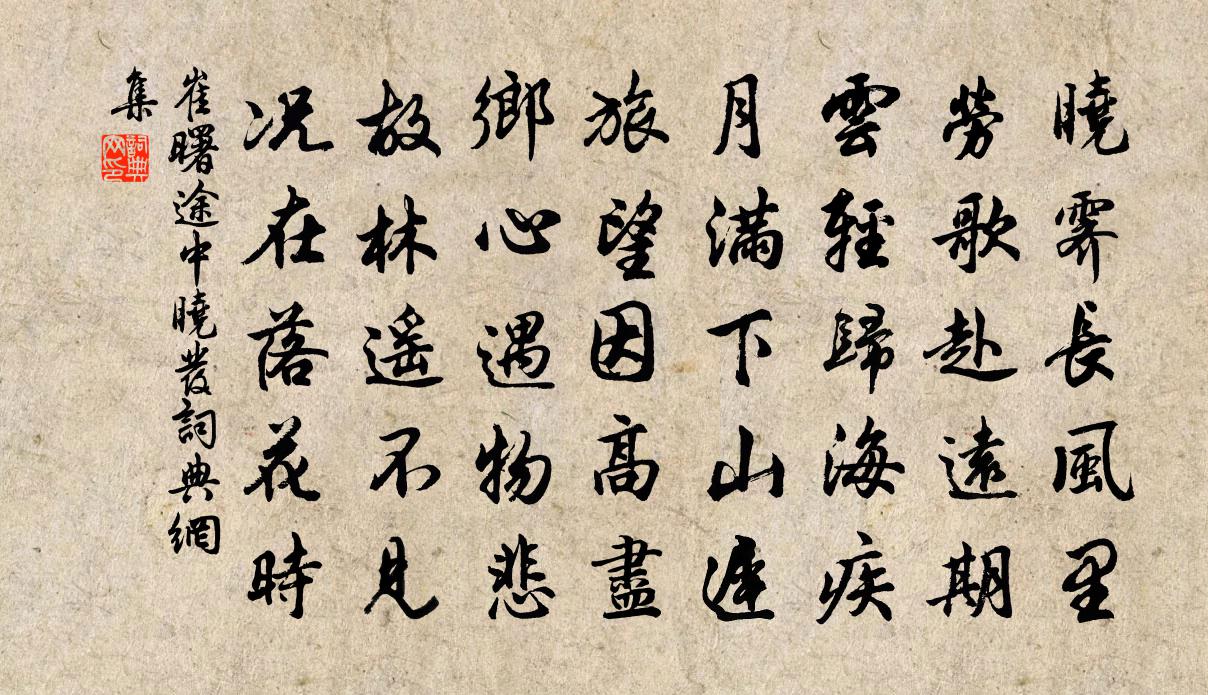 曉霽長風里
勞歌赴遠期
雲輕歸海疾
月滿下山遲
旅望因高盡
鄉心遇物悲
故林遥不見
况在落花時
崔曙途中曉發詞典網
集
詞典
网印